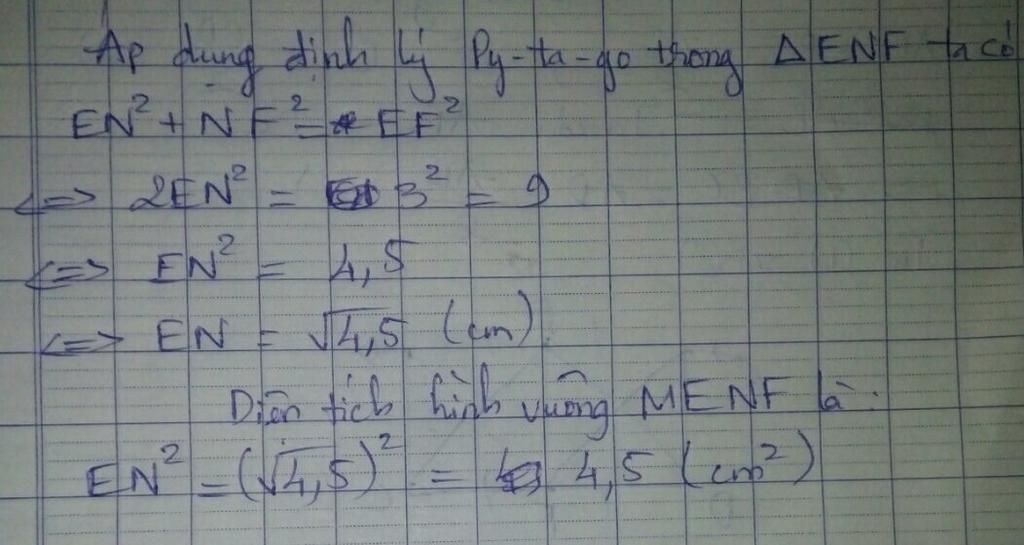 Áp dụng định lý Py-ta-go trong ΔENF ta có
EN² + NF² = EF²
<=> 2EN² = 3² = 9
<=> EN² = 4,5
<=> EN = √4,5 (cm)
Diện tích hình vuông MENF là:
EN² = (√4,5)² = 4,5 (cm²)